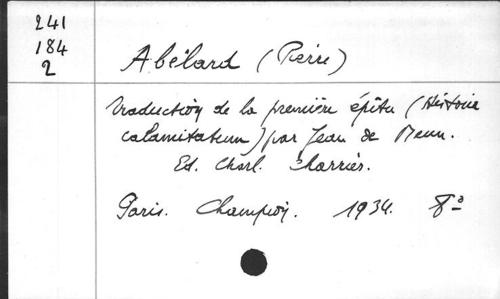 241
184
2
Abélard (Pierre)
Traduction de la première épître (Historia
calamitatum) par Jean de Meun.
Ed. Charl. Charrier.
Paris. Champion. 1934. 8°